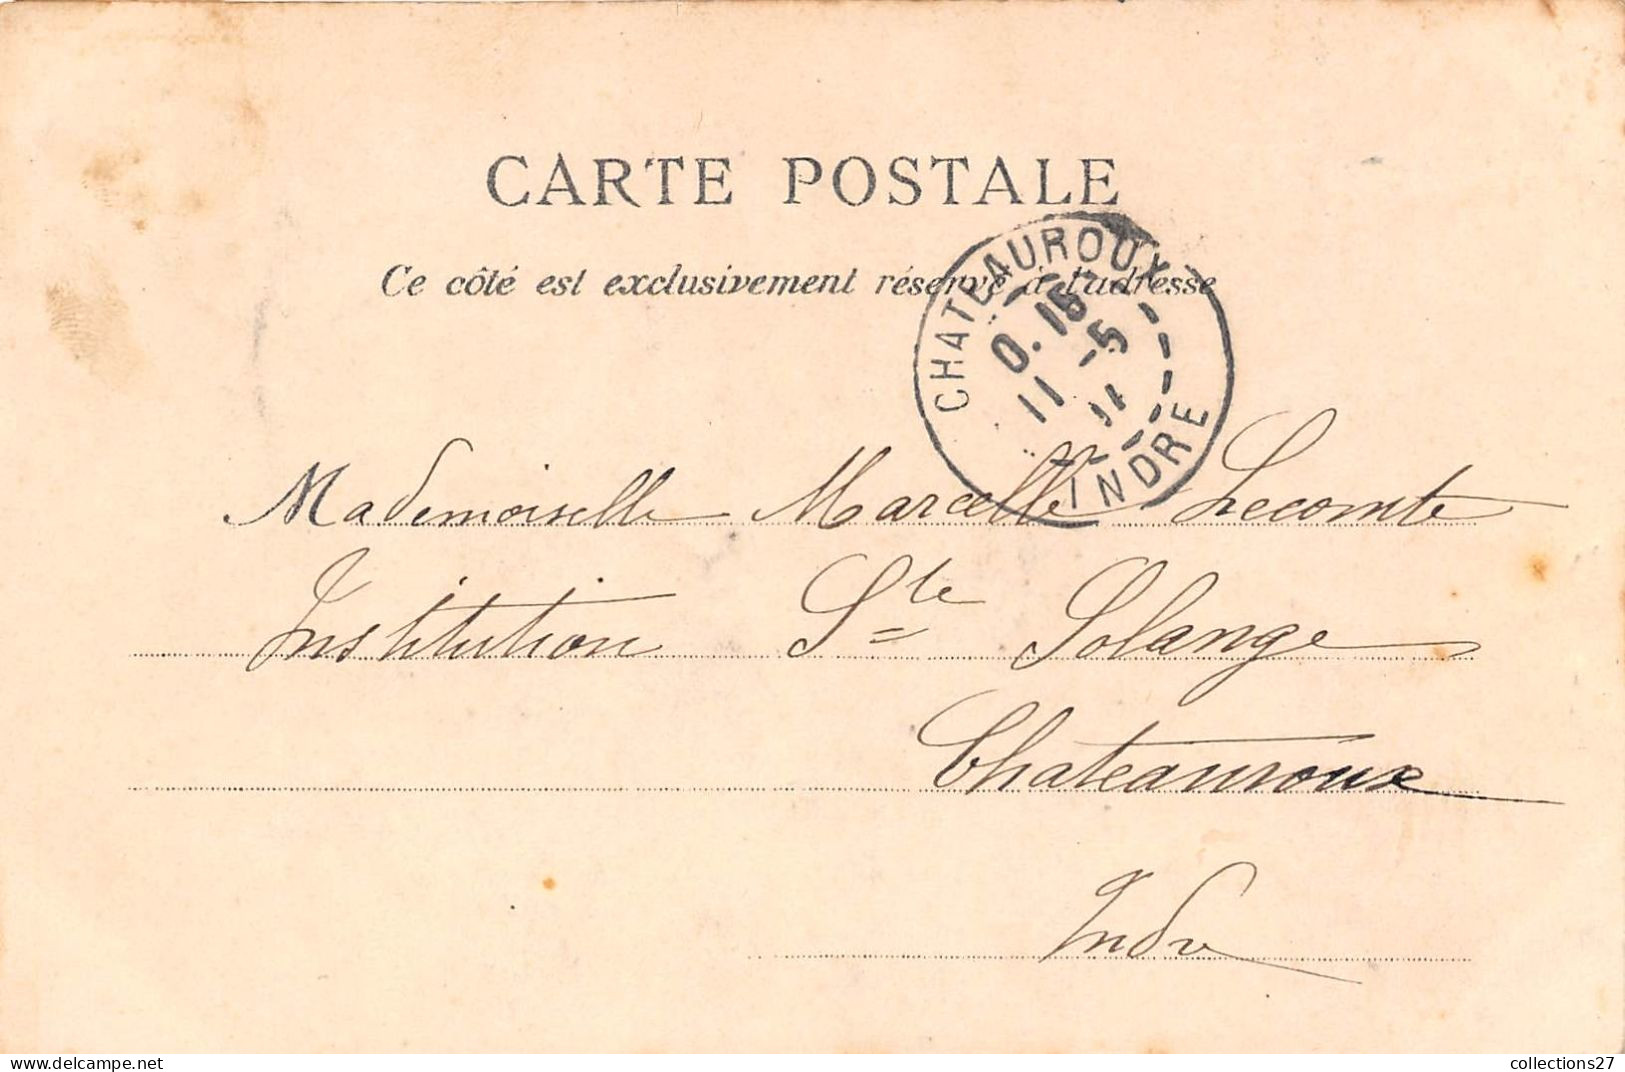 CARTE POSTALE
Ce côté est exclusivement réservé à l'adresse
CHATEAUROUX
0.15
11 -5
11
INDRE
Mademoiselle Marcelle Lecomte
Institution Ste Solange
Chateauroux
Indre
collections27